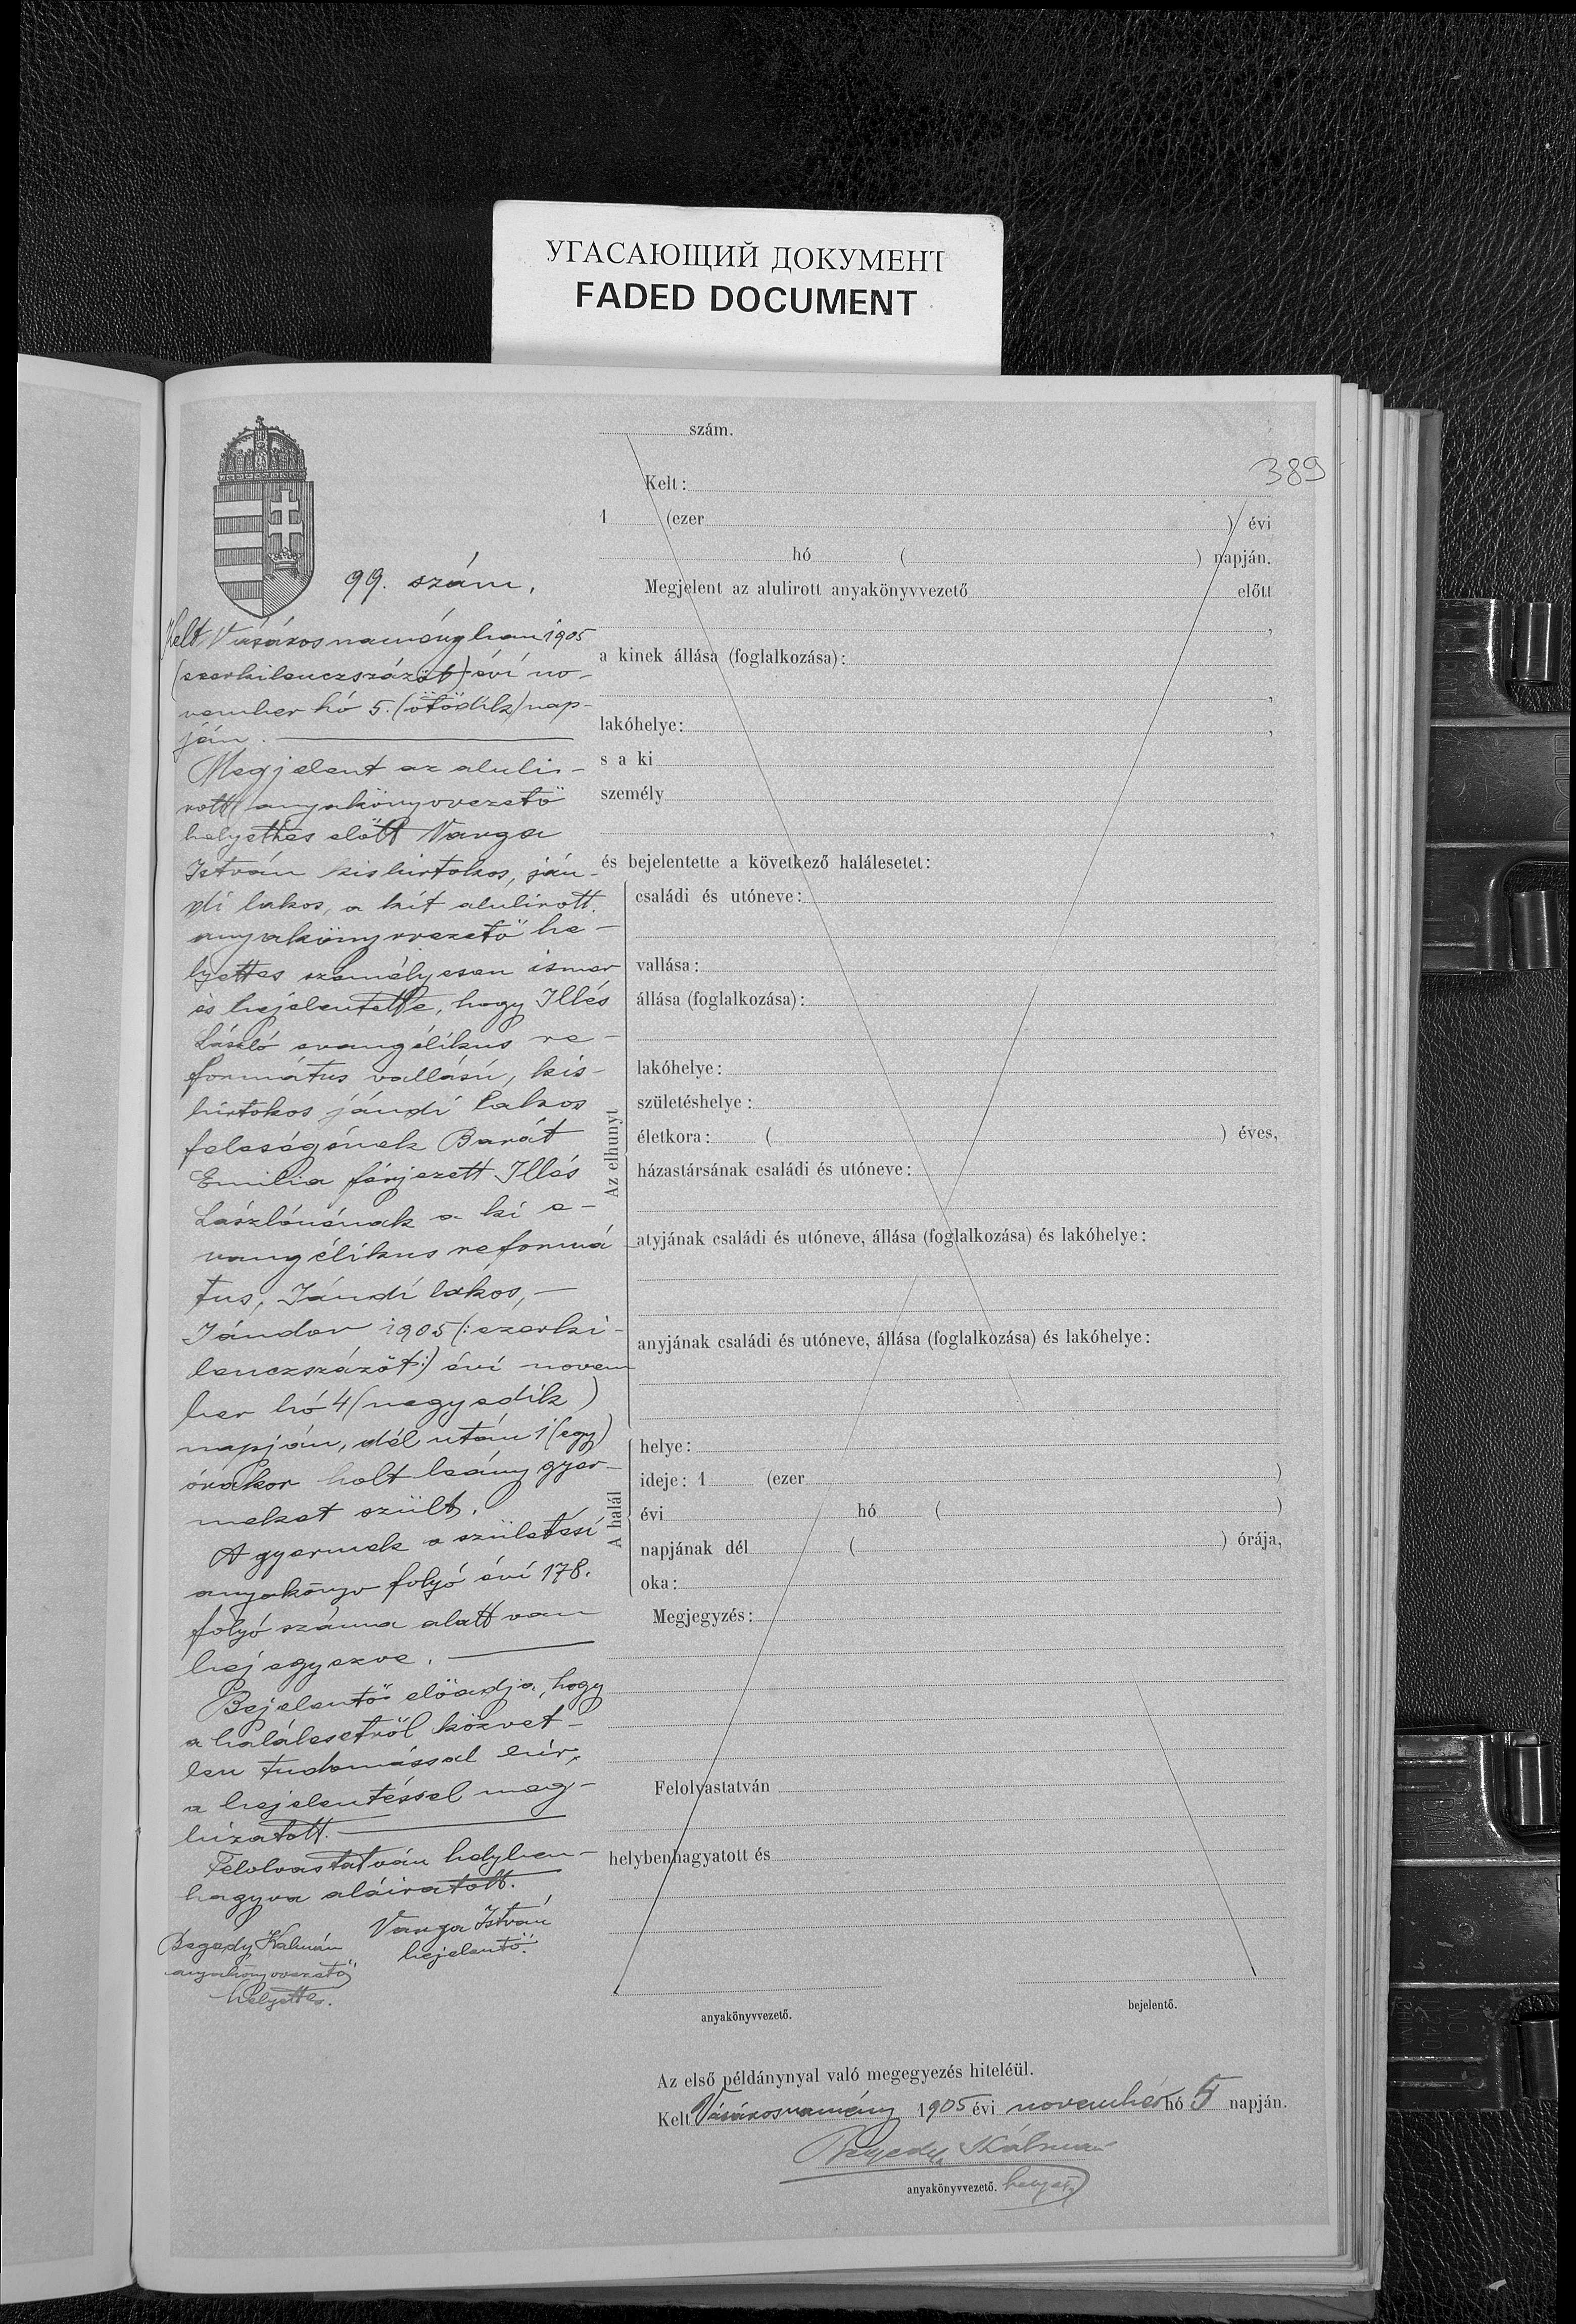 УГАСАЮЩИЙ ДОКУМЕНТ
FADED DOCUMENT
389
99. szám.
Kelt Vásárosnaményban 1905
(ezerkilenczszázöt) évi no-
vember hó 5. (ötödik) nap-
ján.
Megjelent az aluli-
rott anyakönyvvezető
helyettes előtt Varga
István kisbirtokos, ján-
di lakos, a kit alulirott
anyakönyvvezető he-
lyettes személyesen ismer
és bejelentette, hogy Illés
László evangélikus re-
formátus vallású, kis-
birtokos jándi lakos
feleségének Barát
Emilia férjezett Illés
Lászlónénak a ki e-
vangélikus reformá
tus, Jándi lakos,
Jándon 1905 (: ezerki-
lenczszázöt :) évi novem
ber hó 4 (negyedik)
napján, dél után 1 (egy)
órakor holt leány gyer-
meket szült.
A gyermek a születési
anyakönyv folyó évi 178.
folyó száma alatt van
bejegyezve.
Bejelentő előadja, hogy
a halálesetről közvet-
len tudomással bir,
a bejelentéssel meg-
bizatott.
Felolvastatván helyben-
hagyva aláiratott.
Varga István
bejelentő.
Begedy Kálmán
anyakönyvvezető
helyettes.
szám.
Kelt:
1 (ezer ) évi
hó ( ) napján.
Megjelent az alulirott anyakönyvvezető előtt
,
a kinek állása (foglalkozása):
,
lakóhelye: ,
s a ki
személy
,
és bejelentette a következő halálesetet:
Az elhunyt
családi és utóneve:
vallása:
állása (foglalkozása):
lakóhelye:
születéshelye:
életkora: ( ) éves,
házastársának családi és utóneve:
atyjának családi és utóneve, állása (foglalkozása) és lakóhelye:
anyjának családi és utóneve, állása (foglalkozása) és lakóhelye:
A halál
helye:
ideje: 1 (ezer )
évi hó ( )
napjának dél ( ) órája,
oka:
Megjegyzés:
Felolvastatván
helybenhagyatott és
anyakönyvvezető.
bejelentő.
Az első példánynyal való megegyezés hiteléül.
Kelt Vásárosnamény 1905 évi november hó 5 napján.
Begedy Kálmán
anyakönyvvezető. helyett.